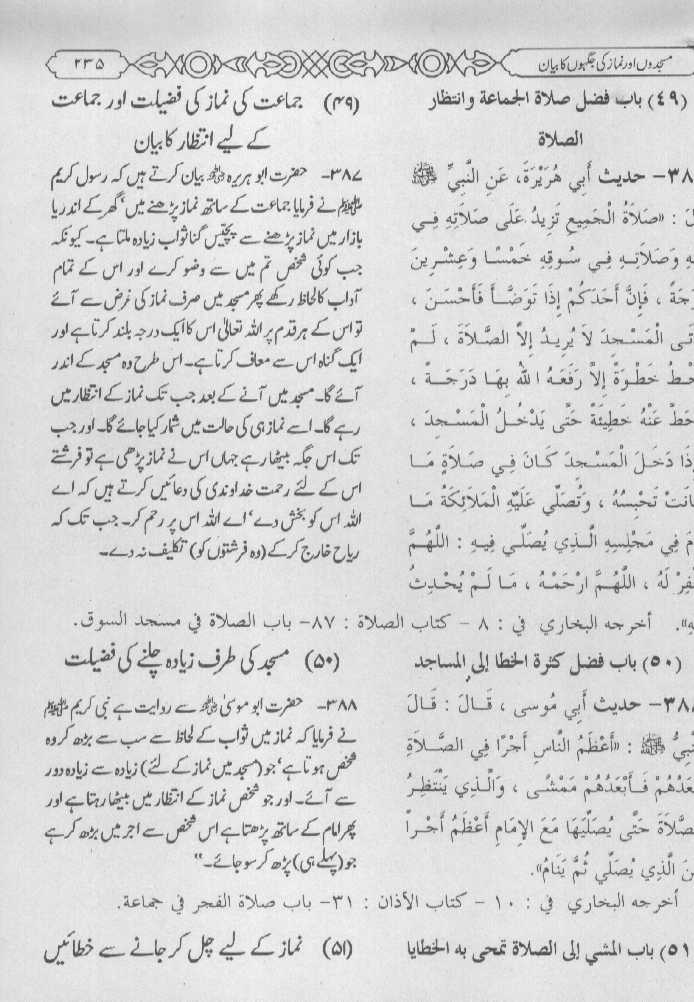 مسجدوں اور نماز کی جگہوں کا بیان
۲۳۵
(٤٩) باب فضل صلاة الجماعة وانتظار
الصلاة
٣٨- حديث أَبِي هُرَيْرَةَ، عَنِ النَّبِيِّ ﷺ
لَ : «صَلاَةُ الْجَمِيعِ تَزِيدُ عَلَى صَلاَتِهِ فِي
هِ وَصَلاَتِهِ فِي سُوقِهِ خَمْسًا وَعِشْرِينَ
جَةً ، فَإِنَّ أَحَدَكُمْ إِذَا تَوَضَّأَ فَأَحْسَنَ ،
تَى الْمَسْجِدَ لاَ يُرِيدُ إِلاَّ الصَّلاَةَ ، لَمْ
خْطُ خَطْوَةً إِلاَّ رَفَعَهُ اللهُ بِهَا دَرَجَةً ،
حَطَّ عَنْهُ خَطِيئَةً حَتَّى يَدْخُلَ الْمَسْجِدَ ،
إِذَا دَخَلَ الْمَسْجِدَ كَانَ فِي صَلاَةٍ مَا
كَانَتْ تَحْبِسُهُ ، وَتُصَلِّي عَلَيْهِ الْمَلاَئِكَةُ مَا
مَ فِي مَجْلِسِهِ الَّذِي يُصَلِّي فِيهِ : اللَّهُمَّ
فِرْ لَهُ ، اللَّهُمَّ ارْحَمْهُ ، مَا لَمْ يُحْدِثْ
(۴۹) جماعت کی نماز کی فضیلت اور جماعت
کے لیے انتظار کا بیان
۳۸۷- حضرت ابو ہریرہ رضی اللہ عنہ بیان کرتے ہیں کہ رسول کریم
ﷺ نے فرمایا جماعت کے ساتھ نماز پڑھنے میں‘ گھر کے اندر یا
بازار میں نماز پڑھنے سے پچیس گنا ثواب زیادہ ملتا ہے۔ کیونکہ
جب کوئی شخص تم میں سے وضو کرے اور اس کے تمام
آداب کا لحاظ رکھے پھر مسجد میں صرف نماز کی غرض سے آئے
تو اس کے ہر قدم پر اللہ تعالیٰ اس کا ایک درجہ بلند کرتا ہے اور
ایک گناہ اس سے معاف کرتا ہے۔ اس طرح وہ مسجد کے اندر
آئے گا۔ مسجد میں آنے کے بعد جب تک نماز کے انتظار میں
رہے گا۔ اسے نماز ہی کی حالت میں شمار کیا جائے گا۔ اور جب
تک اس جگہ بیٹھا رہے جہاں اس نے نماز پڑھی ہے تو فرشتے
اس کے لئے رحمت خداوندی کی دعائیں کرتے ہیں کہ اے
اللہ اس کو بخش دے‘ اے اللہ اس پر رحم کر۔ جب تک کہ
ریاح خارج کر کے (وہ فرشتوں کو) تکلیف نہ دے۔
ه». أخرجه البخاري في : ٨ - كتاب الصلاة : ٨٧- باب الصلاة في مسجد السوق.
(٥٠) باب فضل كثرة الخطا إلى المساجد
٣٨- حديث أَبِي مُوسى ، قَالَ : قَالَ
نَّبِيُّ ﷺ : «أَعْظَمُ النَّاسِ أَجْرًا فِي الصَّلاَةِ
بْعَدُهُمْ فَأَبْعَدُهُمْ مَمْشًى ، وَالَّذِي يَنْتَظِرُ
صَّلاَةَ حَتَّى يُصَلِّيَهَا مَعَ الإِمَامِ أَعْظَمُ أَجْرًا
نَ الَّذِي يُصَلِّي ثُمَّ يَنَامُ».
(۵۰) مسجد کی طرف زیادہ چلنے کی فضیلت
۳۸۸- حضرت ابو موسیٰ رضی اللہ عنہ سے روایت ہے نبی کریم ﷺ
نے فرمایا کہ نماز میں ثواب کے لحاظ سے سب سے بڑھ کر وہ
شخص ہوتا ہے‘ جو (مسجد میں نماز کے لئے) زیادہ سے زیادہ دور
سے آئے۔ اور جو شخص نماز کے انتظار میں بیٹھا رہتا ہے اور
پھر امام کے ساتھ پڑھتا ہے اس شخص سے اجر میں بڑھ کر ہے
جو (پہلے ہی) پڑھ کر سو جائے۔"
أخرجه البخاري في : ١٠ - كتاب الأذان : ٣١- باب صلاة الفجر في جماعة.
(٥١) باب المشي إلى الصلاة تمحى به الخطايا
(۵۱) نماز کے لیے چل کر جانے سے خطائیں